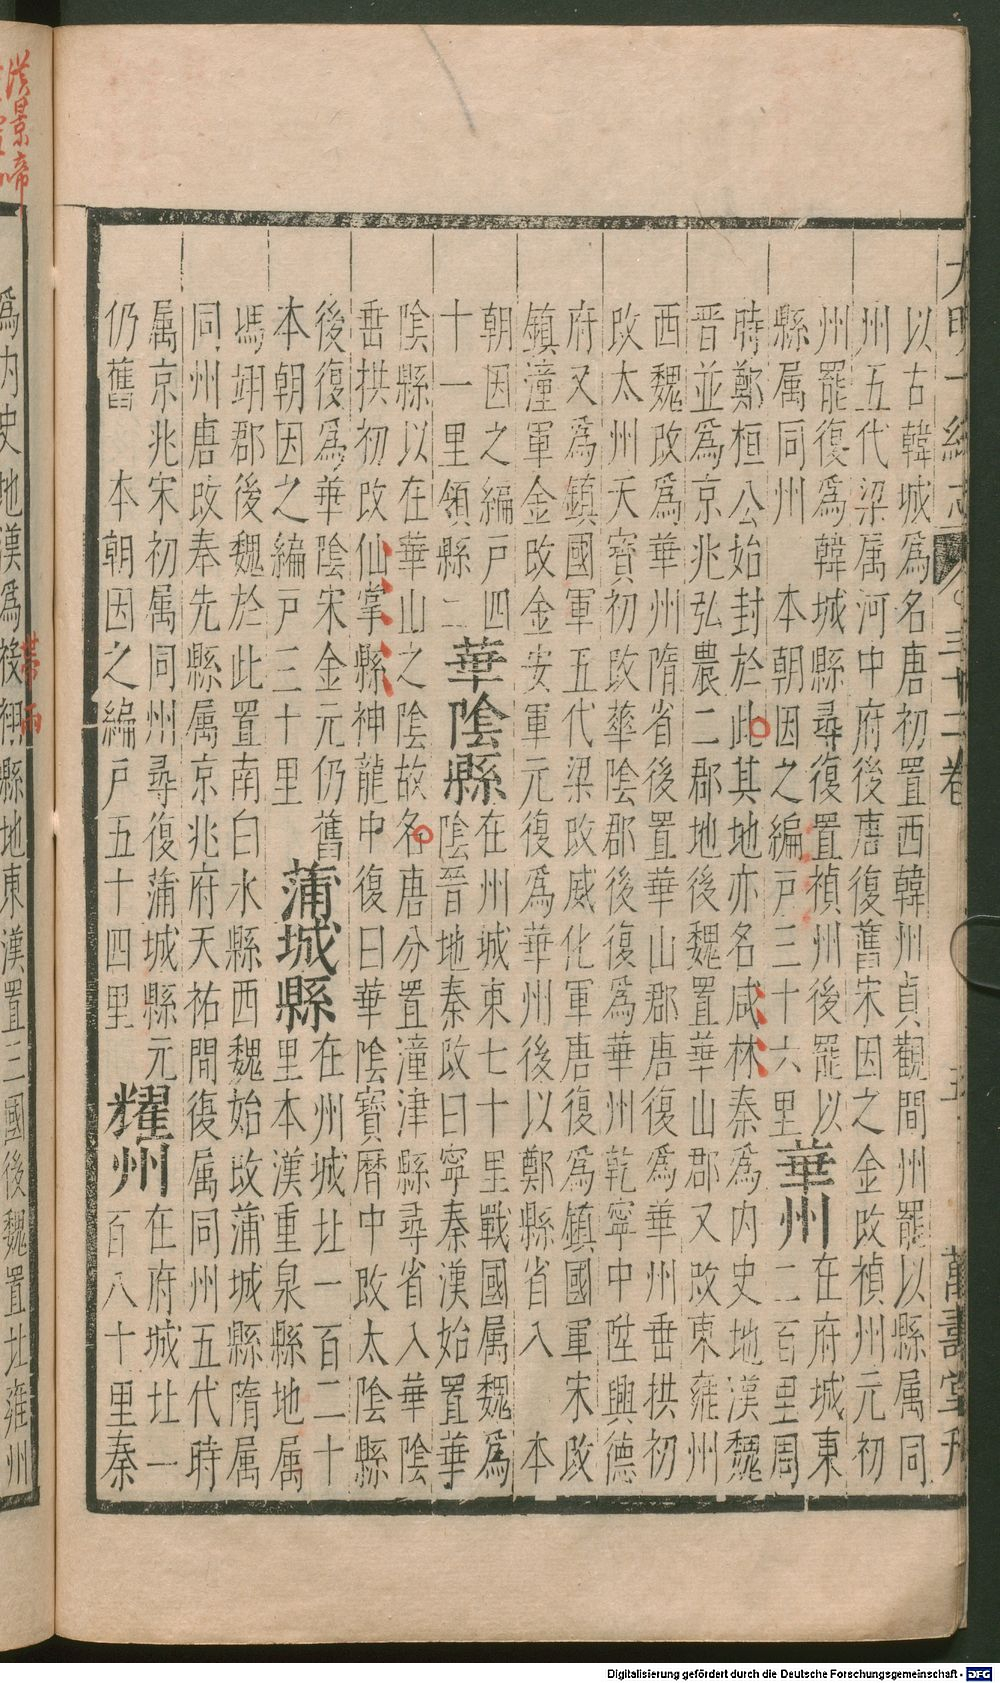 大明一統志 三十二卷 五 萬壽堂刊
以古韓城爲名唐初置西韓州貞觀間州罷以縣属同
州五代梁属河中府後唐復舊宋因之金改禎州元初
州罷復爲韓城縣尋復置禎州後罷以
縣属同州 本朝因之編戸三十六里 華州 在府城東
二百里周
時鄭桓公始封於此其地亦名咸林秦爲内史地漢魏
晋並爲京兆弘農二郡地後魏置華山郡又改東雍州
西魏改爲華州隋省後置華山郡唐復爲華州垂拱初
改太州天寳初改華陰郡後復爲華州乾寧中陞興德
府又爲鎮國軍五代梁改威化軍唐復爲鎮國軍宋改
鎮潼軍金改金安軍元復爲華州後以鄭縣省入 本
朝因之編戸四
十一里領縣二 華陰縣 在州城東七十里戰國属魏爲
陰晉地秦改曰寧秦漢始置華
陰縣以在華山之陰故名唐分置潼津縣尋省入華陰
垂拱初改仙掌縣神龍中復曰華陰寳曆中改太陰縣
後復爲華陰宋金元仍舊
本朝因之編戸三十里 蒲城縣 在州城北一百二十
里本漢重泉縣地属
馮翊郡後魏於此置南白水縣西魏始改蒲城縣隋属
同州唐改奉先縣属京兆府天祐間復属同州五代時
属京兆宋初属同州尋復蒲城縣元
仍舊 本朝因之編戸五十四里 耀州 在府城北一
百八十里秦
爲内史地漢爲祋祤縣地東漢置三國後魏置北雍州
漢景帝